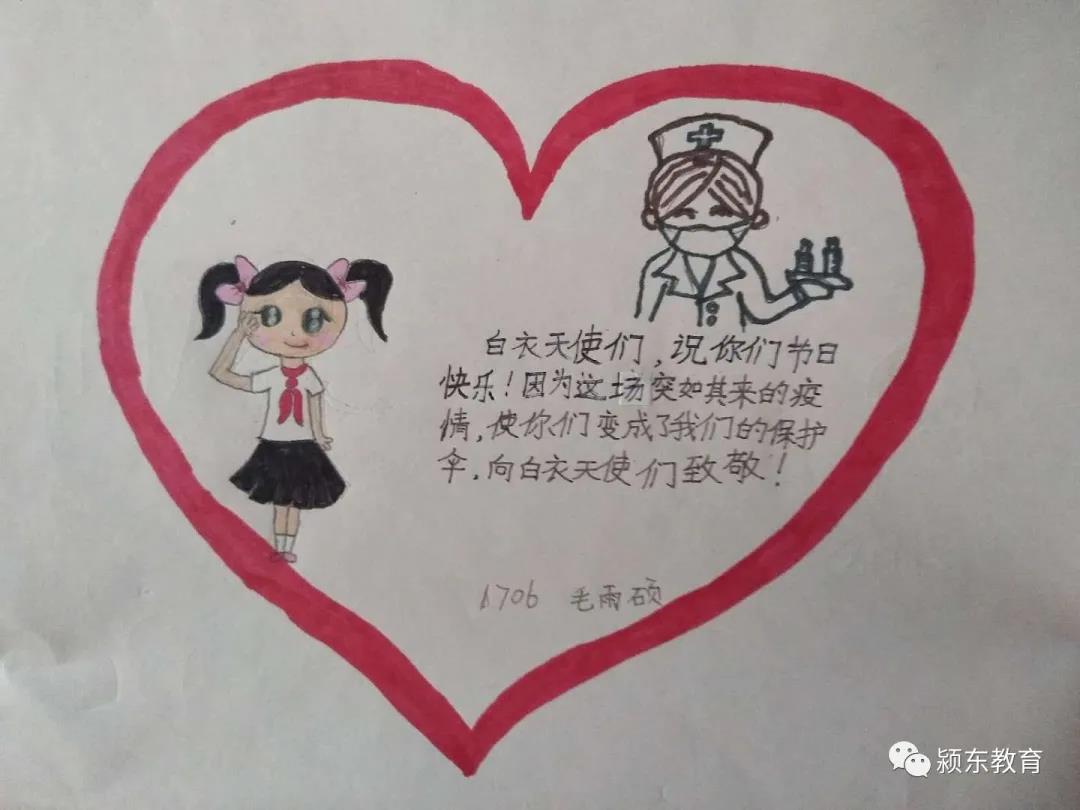 白衣天使们,说你们节日
快乐!因为这场突如其来的疫
情,使你们变成了我们的保护
伞.向白衣天使们致敬!
1706 毛雨硕
颍东教育